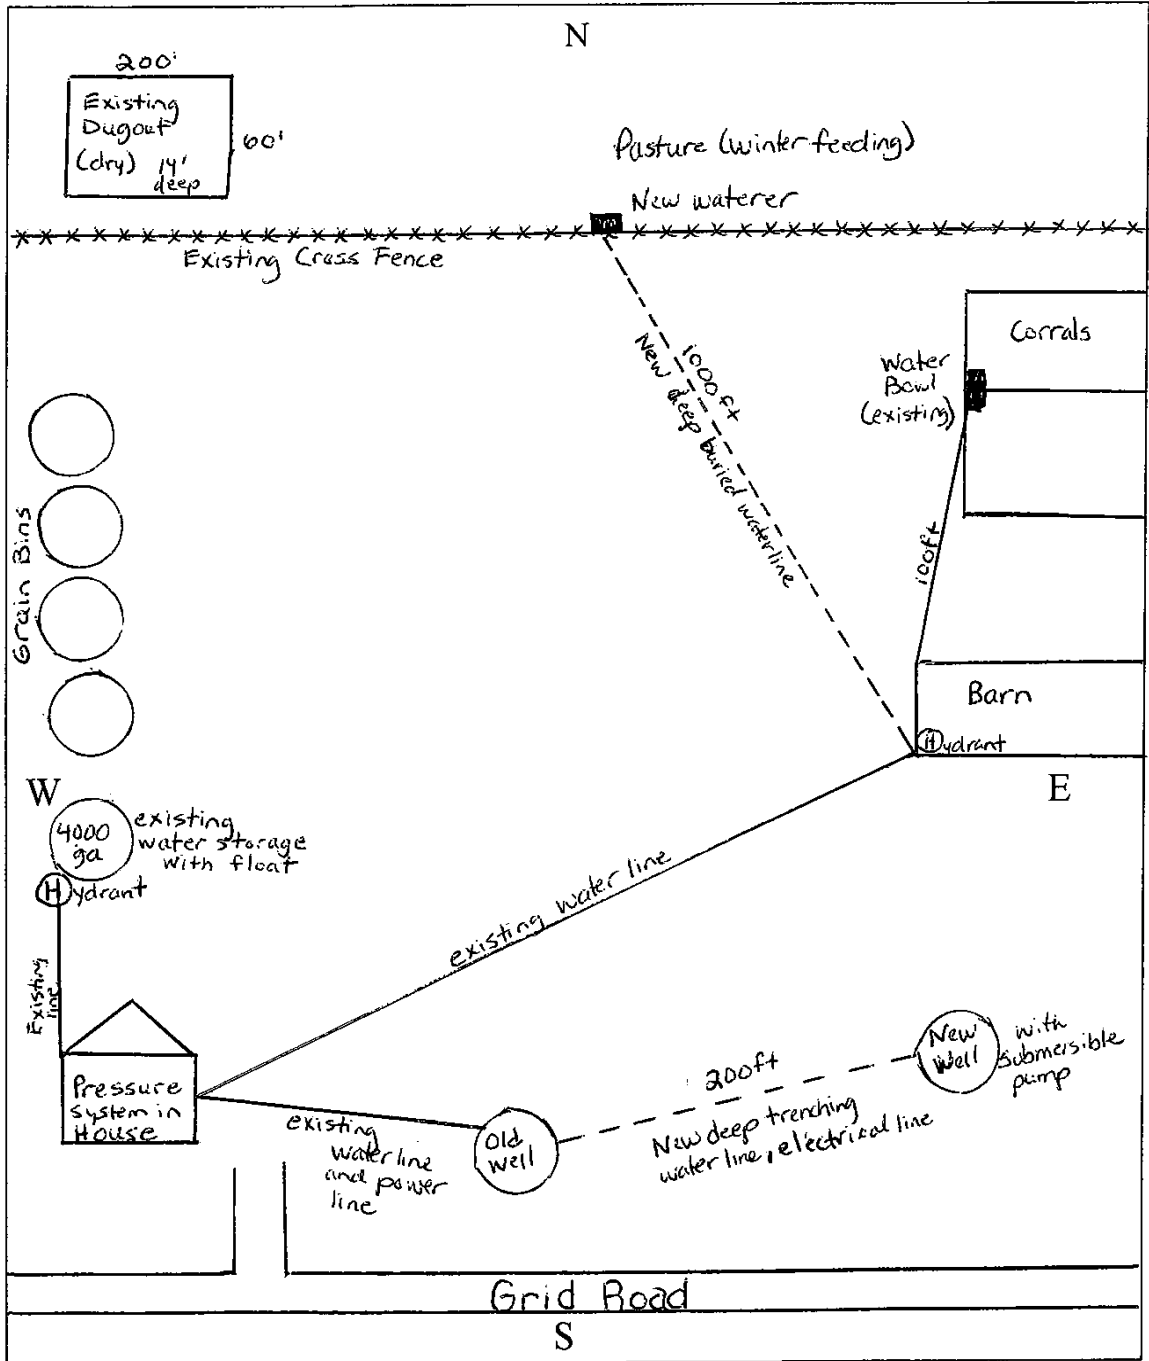 N
200'
Existing
Dugout
(dry) 14'
deep
60'
Pasture (winter feeding)
New waterer
Existing Cross Fence
Corrals
Water
Bowl
(existing)
1000ft
New deep buried waterline
100ft
Grain Bins
Barn
Hydrant
W
E
4000
ga
existing
water storage
with float
Hydrant
existing water line
Existing
line
Pressure
system in
House
existing
waterline
and power
line
Old
Well
200ft
New deep trenching
water line, electrical line
New
Well
with
submersible
pump
Grid Road
S